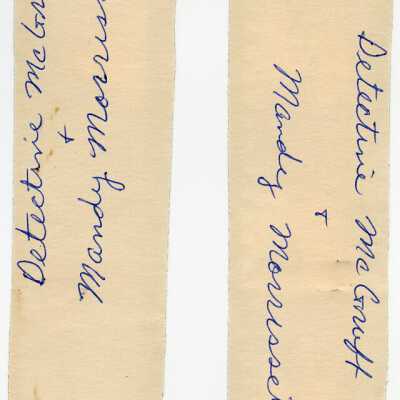 Detective McGr
+
Mandy Morris
Detective McGruft
+
Mandy Morrissei